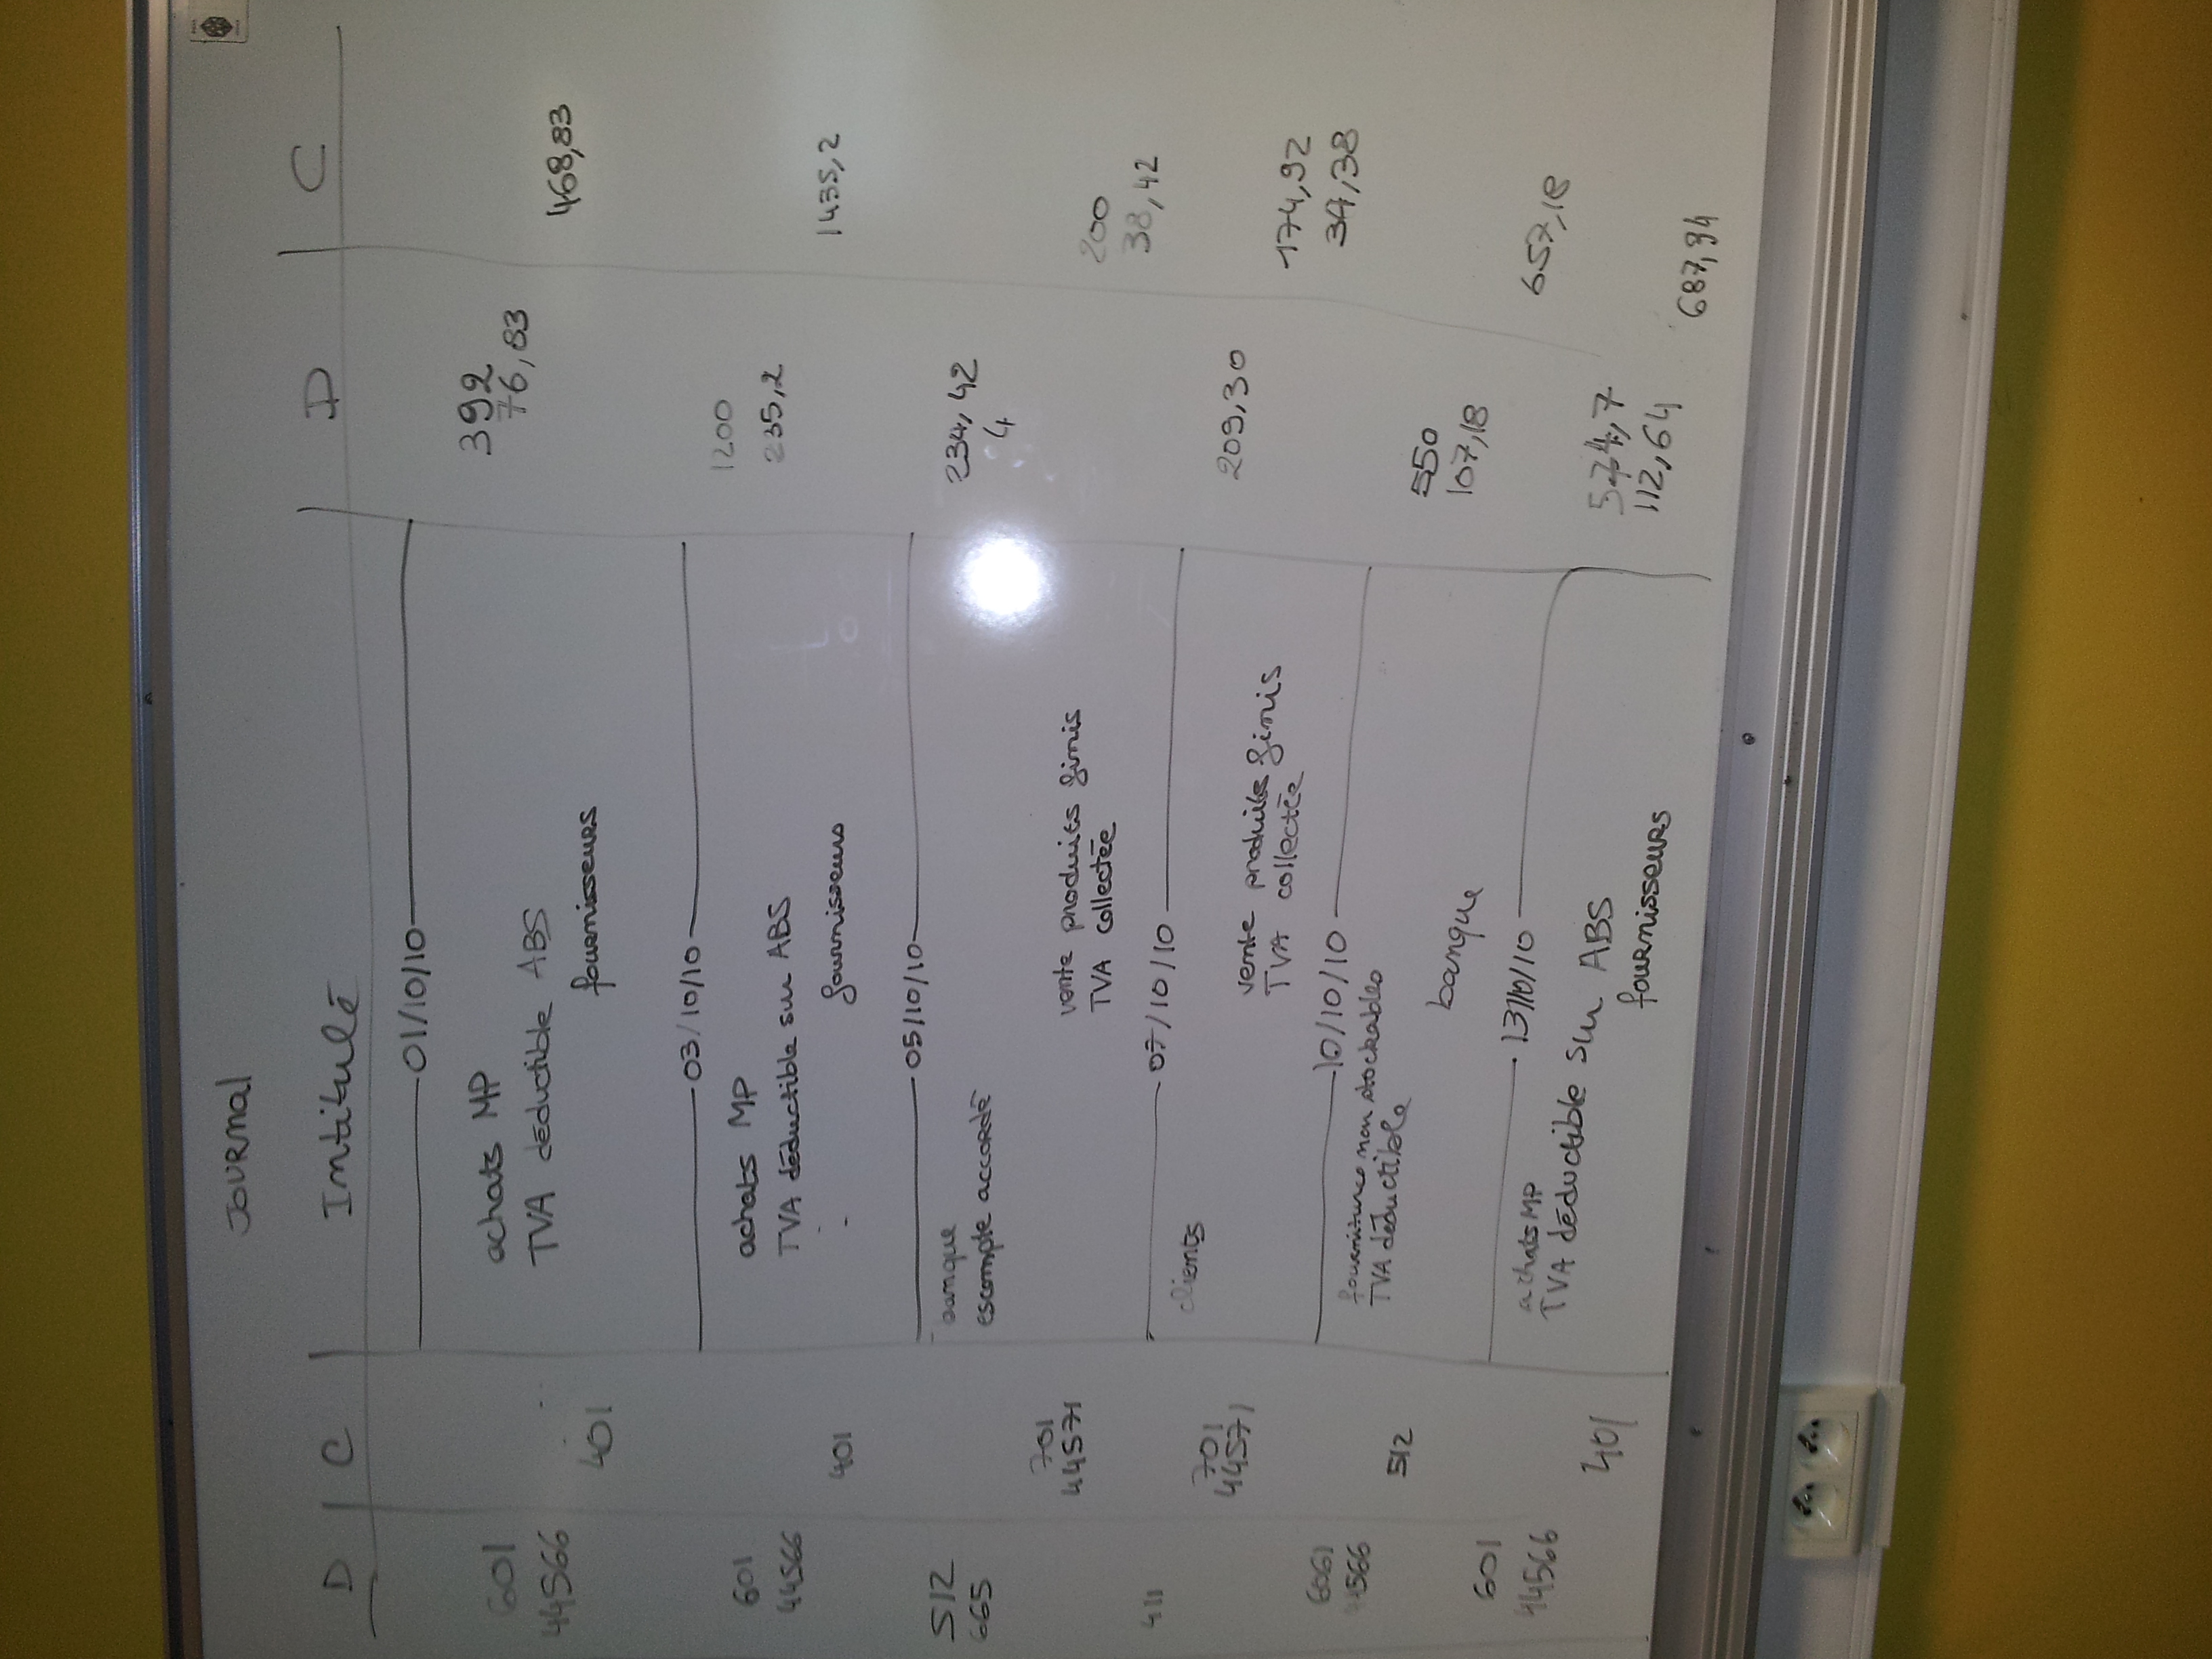 JOURNAL
D C Intitulé D C
01/10/10
601 achats MP 392
44566 TVA déductible ABS 76,83
401 fournisseurs 468,83
03/10/10
601 achats MP 1200
44566 TVA déductible sur ABS 235,2
401 fournisseurs 1435,2
05/10/10
512 banque 234,42
665 escompte accordé 4
701 vente produits finis 200
44571 TVA collectée 38,42
07/10/10
411 clients 209,30
701 vente produits finis 174,92
44571 TVA collectée 34,38
10/10/10
6061 fournitures non stockables 550
44566 TVA déductible 107,18
512 banque 657,18
13/10/10
601 achats MP 574,7
44566 TVA déductible sur ABS 112,64
401 fournisseurs 687,34